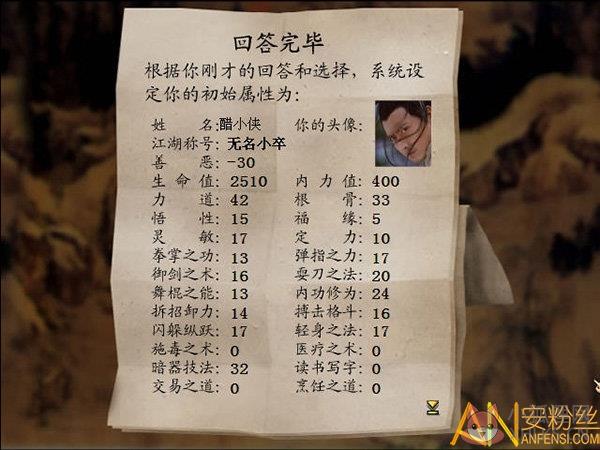 回答完毕
根据你刚才的回答和选择，系统设
定你的初始属性为：
姓 名：醋小侠 你的头像：
江湖称号：无名小卒
善 恶：-30
生 命 值：2510 内 力 值：400
力 道：42 根 骨：33
悟 性：15 福 缘：5
灵 敏：17 定 力：10
拳掌之功：13 弹指之力：17
御剑之术：16 耍刀之法：20
舞棍之能：13 内功修为：24
拆招卸力：14 搏击格斗：16
闪躲纵跃：17 轻身之法：17
施毒之术：0 医疗之术：0
暗器技法：32 读书写字：0
交易之道：0 烹饪之道：0
AN安粉丝
ANFENSI.COM